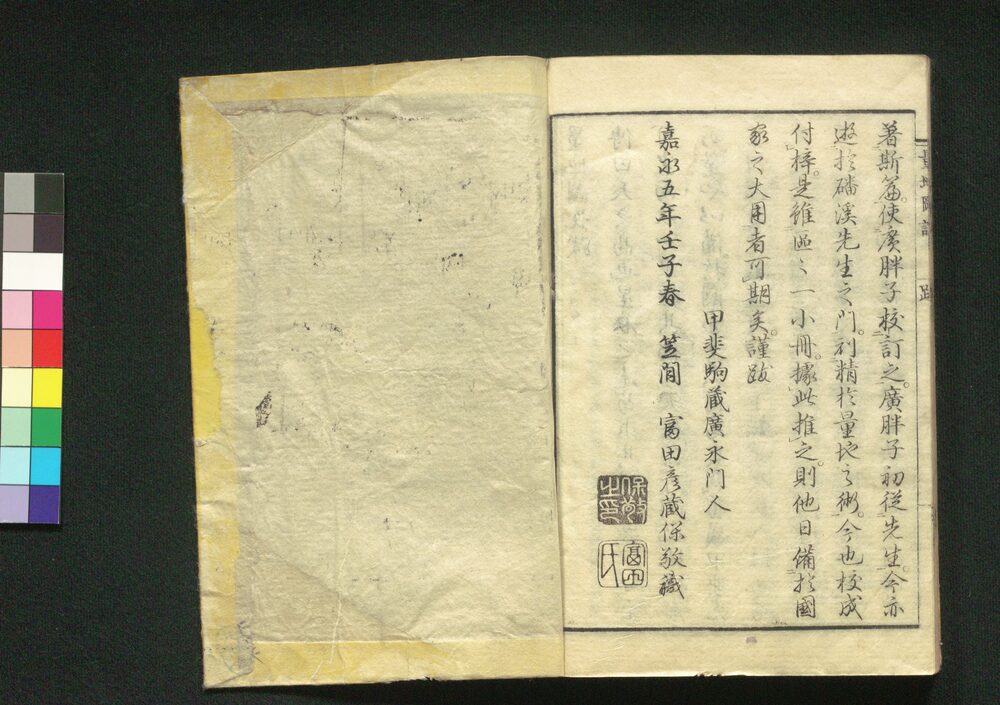 著斯篇。使廣胖子校訂之。廣胖子初從先生。今亦
遊於磻溪先生之門。別精於量地之術。今也校成
付梓。是雖區〻一小冊。據此推之。則他日備於國
家之大用者可期矣。謹跋
甲斐駒藏廣永門人
嘉永五年壬子春 笠間 富田彥藏保敬識
保敬之印
富田氏
量地圖說 跋